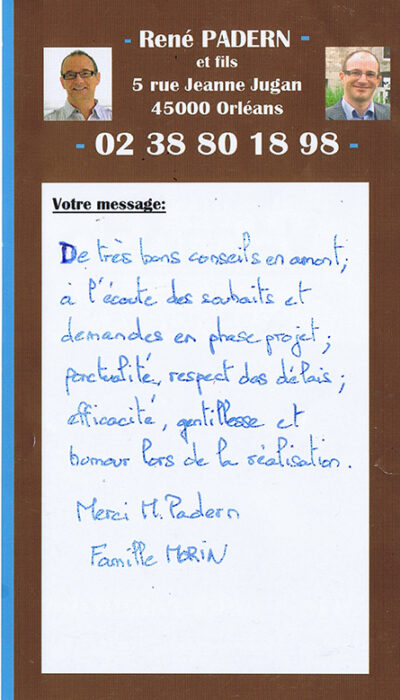 - René PADERN -
et fils
5 rue Jeanne Jugan
45000 Orléans
- 02 38 80 18 98 -
Votre message:
De très bons conseils en amont;
à l'écoute des souhaits et
demandes en phase projet;
ponctualité, respect des délais;
efficacité, gentillesse et
humour lors de la réalisation.
Merci M. Padern
Famille MORIN